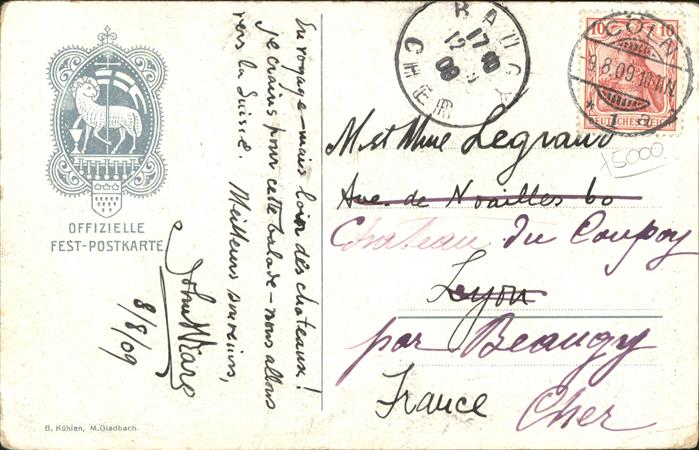 OFFIZIELLE
FEST-POSTKARTE
En voyage - mais loin des chateaux!
je crains pour cette balade - nous allons
vers la Suisse. Meilleurs souvenirs,
John
8/8/09
B. Kühlen, M.Gladbach.
BAUGY
17
12
09
CHER
10 10
DEUTSCHES REICH
CÖLN
9.8.09.
* 1
5000
M et Mme Legrand
Ave. de Noailles 60
Chateau du Coupoy
Lyon
par Beaugy
France
Cher